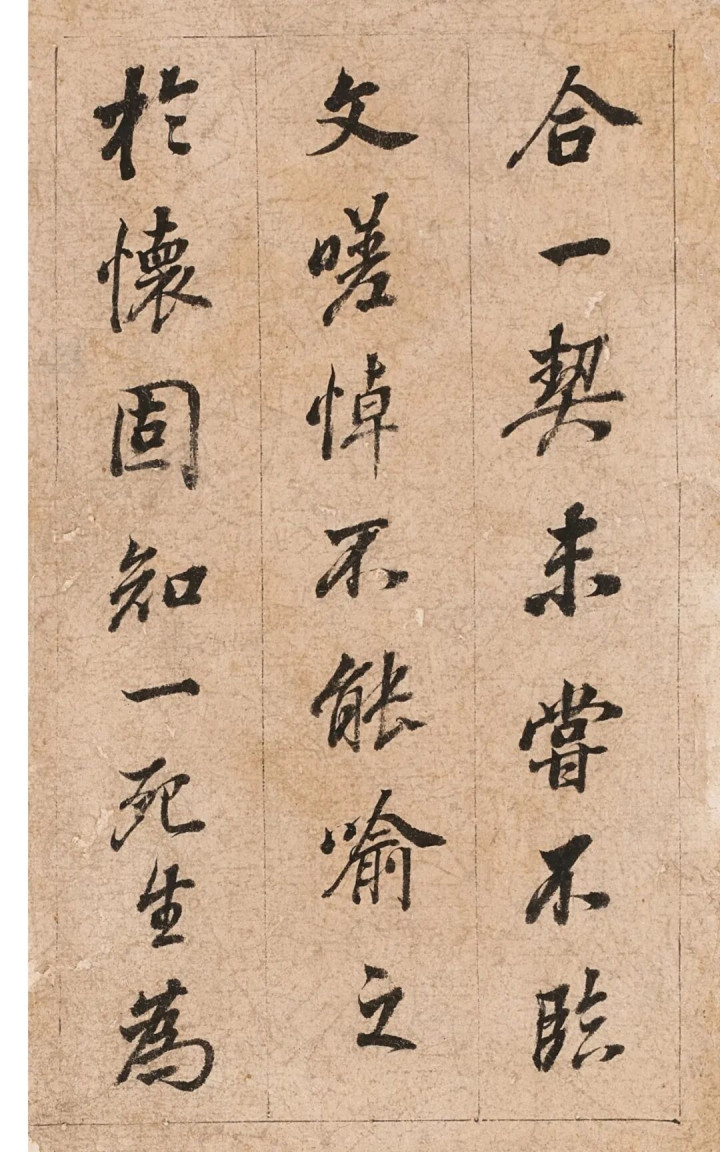 合一契未嘗不臨
文嗟悼不能喻之
於懷固知一死生為